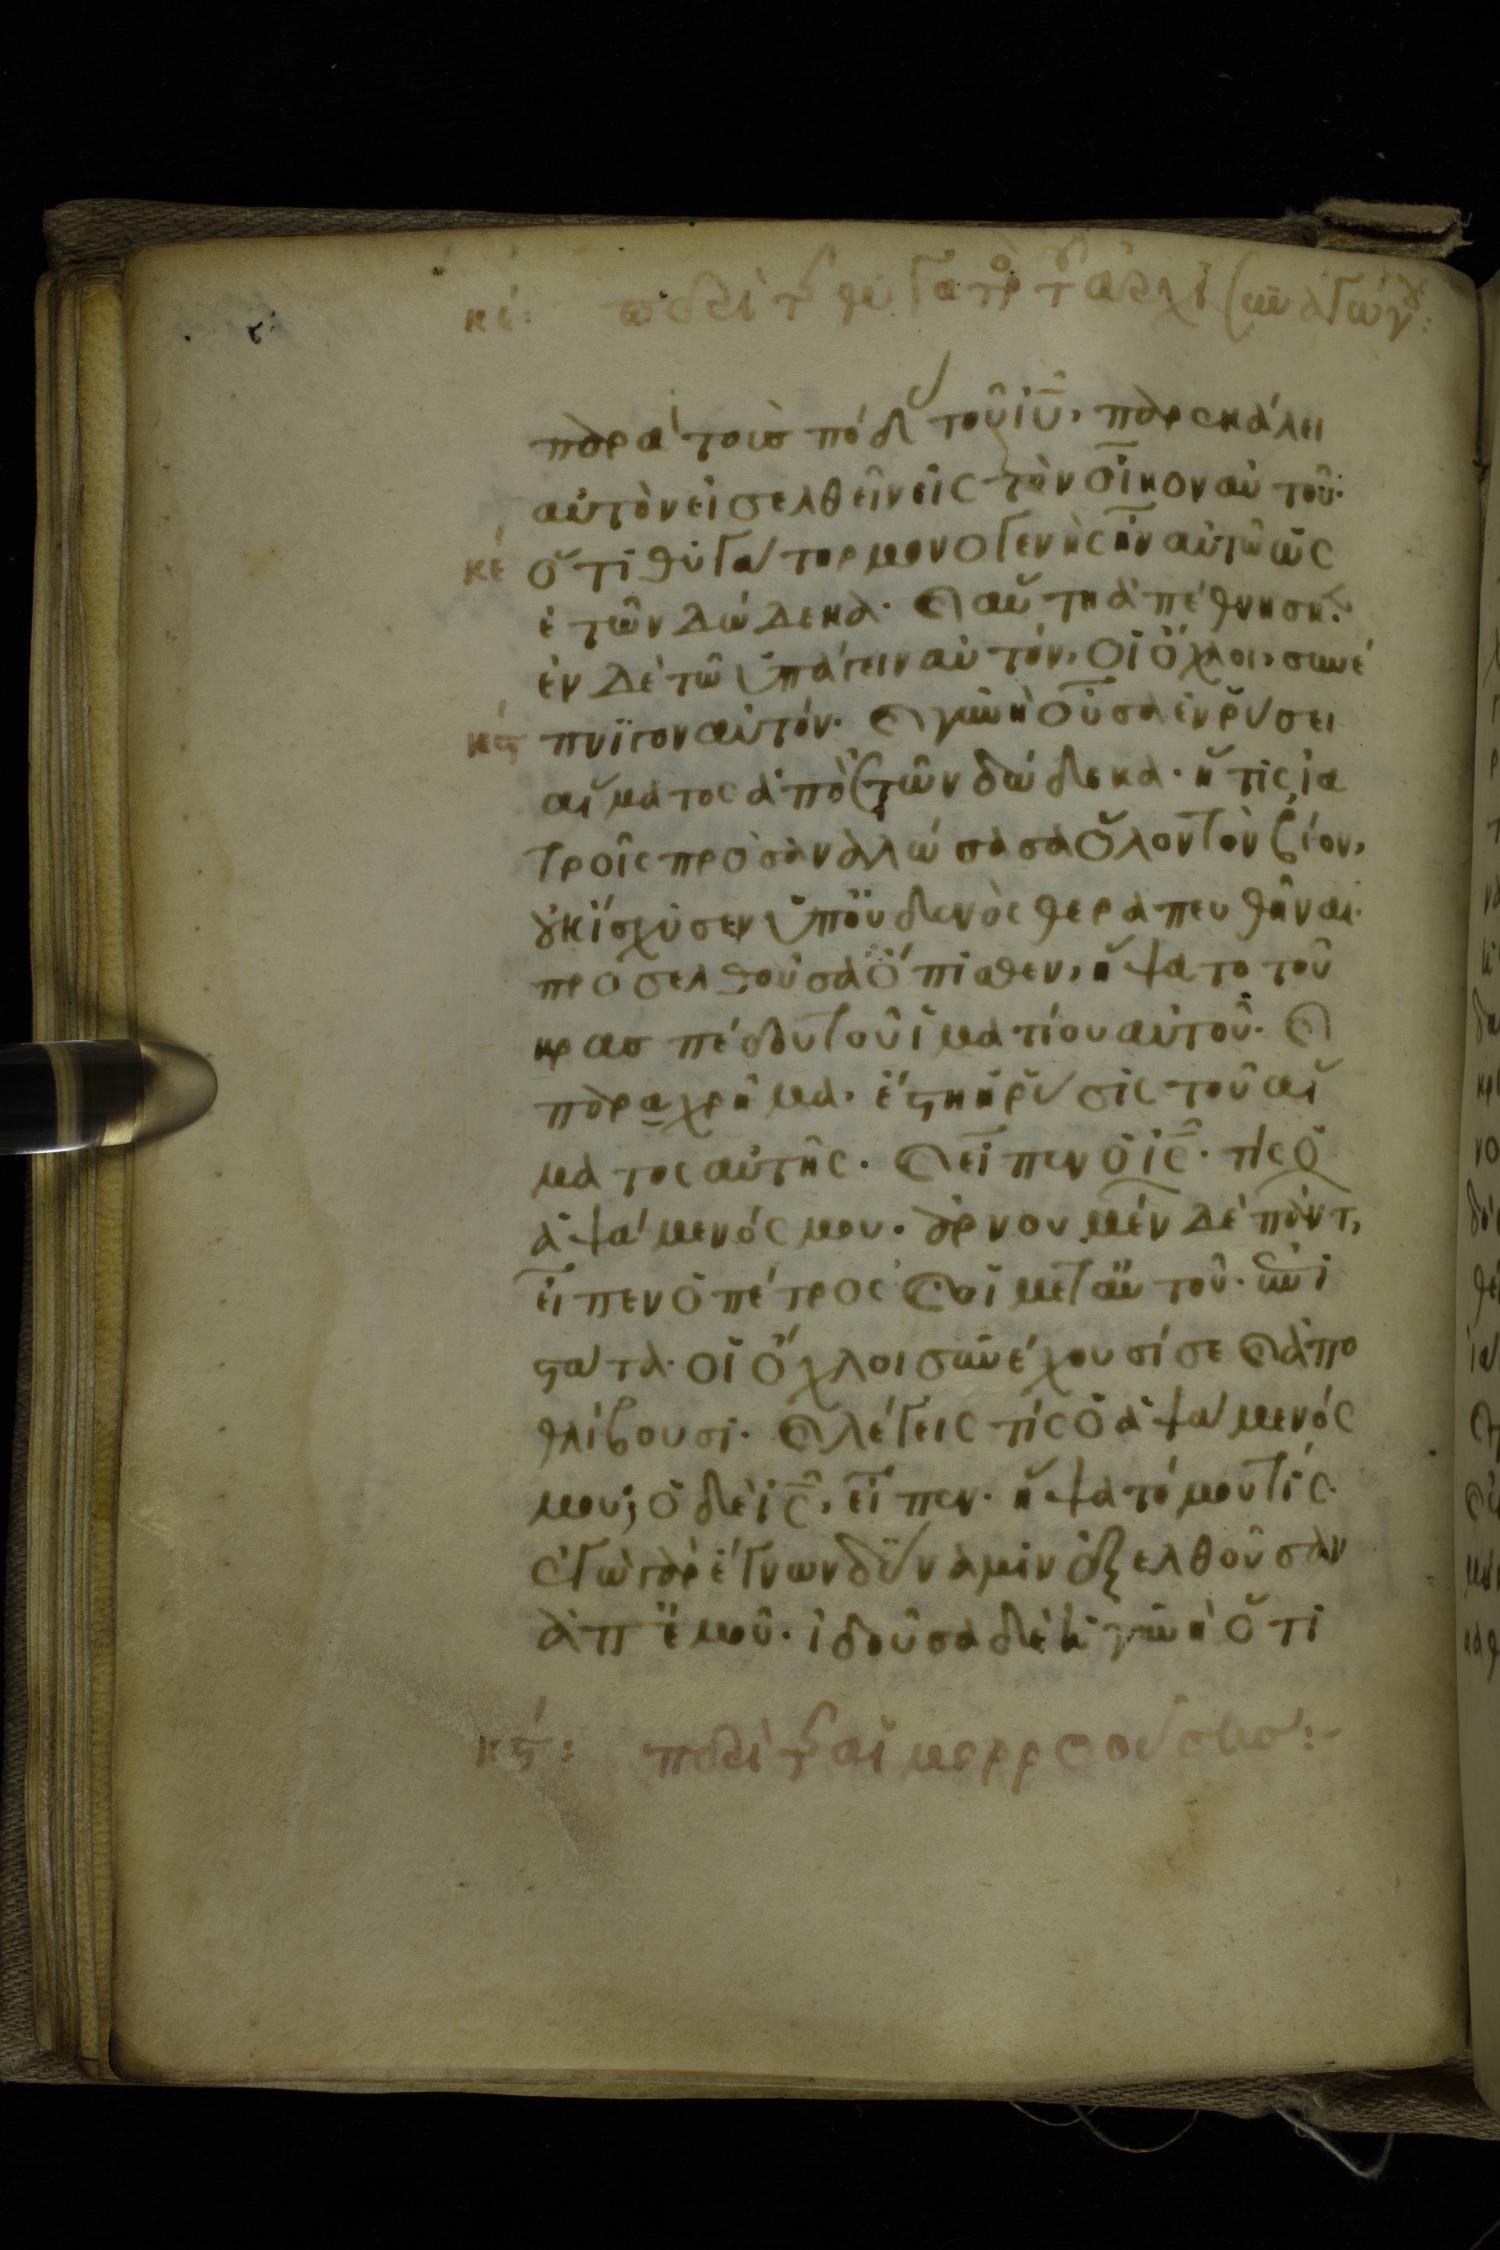 κε: περὶ τ(ης) θυγατρο τοῦ ἀρχισυναγώγου:
παρα τοὺσ πόδ(ας) τοῦ ἰῦ, παρεκάλει
αὐτὸν εἰσελθεῖν εἰς τὸν οἶκον αὐτοῦ·
κε ὅτι θυγάτηρ μονογενὴς ἦν αὐτῶ ὡς
ἐτῶν δώδεκα· καὶ αὕτη ἀπέθνησκ(εν)·
ἐν δὲ τῶ ὑπάγειν αὐτόν, οἱ ὄχλοι, συνέ
κς πνιγον αὐτόν· καὶ γυνὴ οὖσα ἐν ῥύσει
αἵματος ἀπὸ ἐτῶν δώδεκα· ἥτις ἰα
τροῖς προσαναλώσασα ὅλον τὸν βίον,
οὐκ ἴσχυσεν ὑπ' οὐδενὸς θεραπευθῆναι·
προσελθοῦσα ὄπισθεν, ἥψατο τοῦ
κρασπέδου τοῦ ἱματίου αὐτοῦ· καὶ
παραχρῆμα, ἔστη ἡ ῥύσις τοῦ αἵ
ματος αὐτῆς· καὶ εἶπεν ὁ ἰς· τίς ὁ
ἁψάμενός μου· ἀρνουμέν(ων) δὲ πάντ(ων),
εἶπεν ὁ πέτρος καὶ οἱ μετ' αὐτοῦ· ἐπι
στάτα· οἱ ὄχλοι συνέχουσί σε καὶ ἀπο
θλίβουσι· καὶ λέγεις τίς ὁ ἁψάμενός
μου; ὁ δὲ ἰς, εἶπεν· ἥψατό μου τίς·
ἐγὼ γὰρ ἔγνων δύναμιν ἐξελθοῦσαν
ἀπ' ἐμοῦ· ἰδοῦσα δὲ ἡ γυνὴ ὅτι
κς: περὶ τ(ης) αἱμορροούσησ: